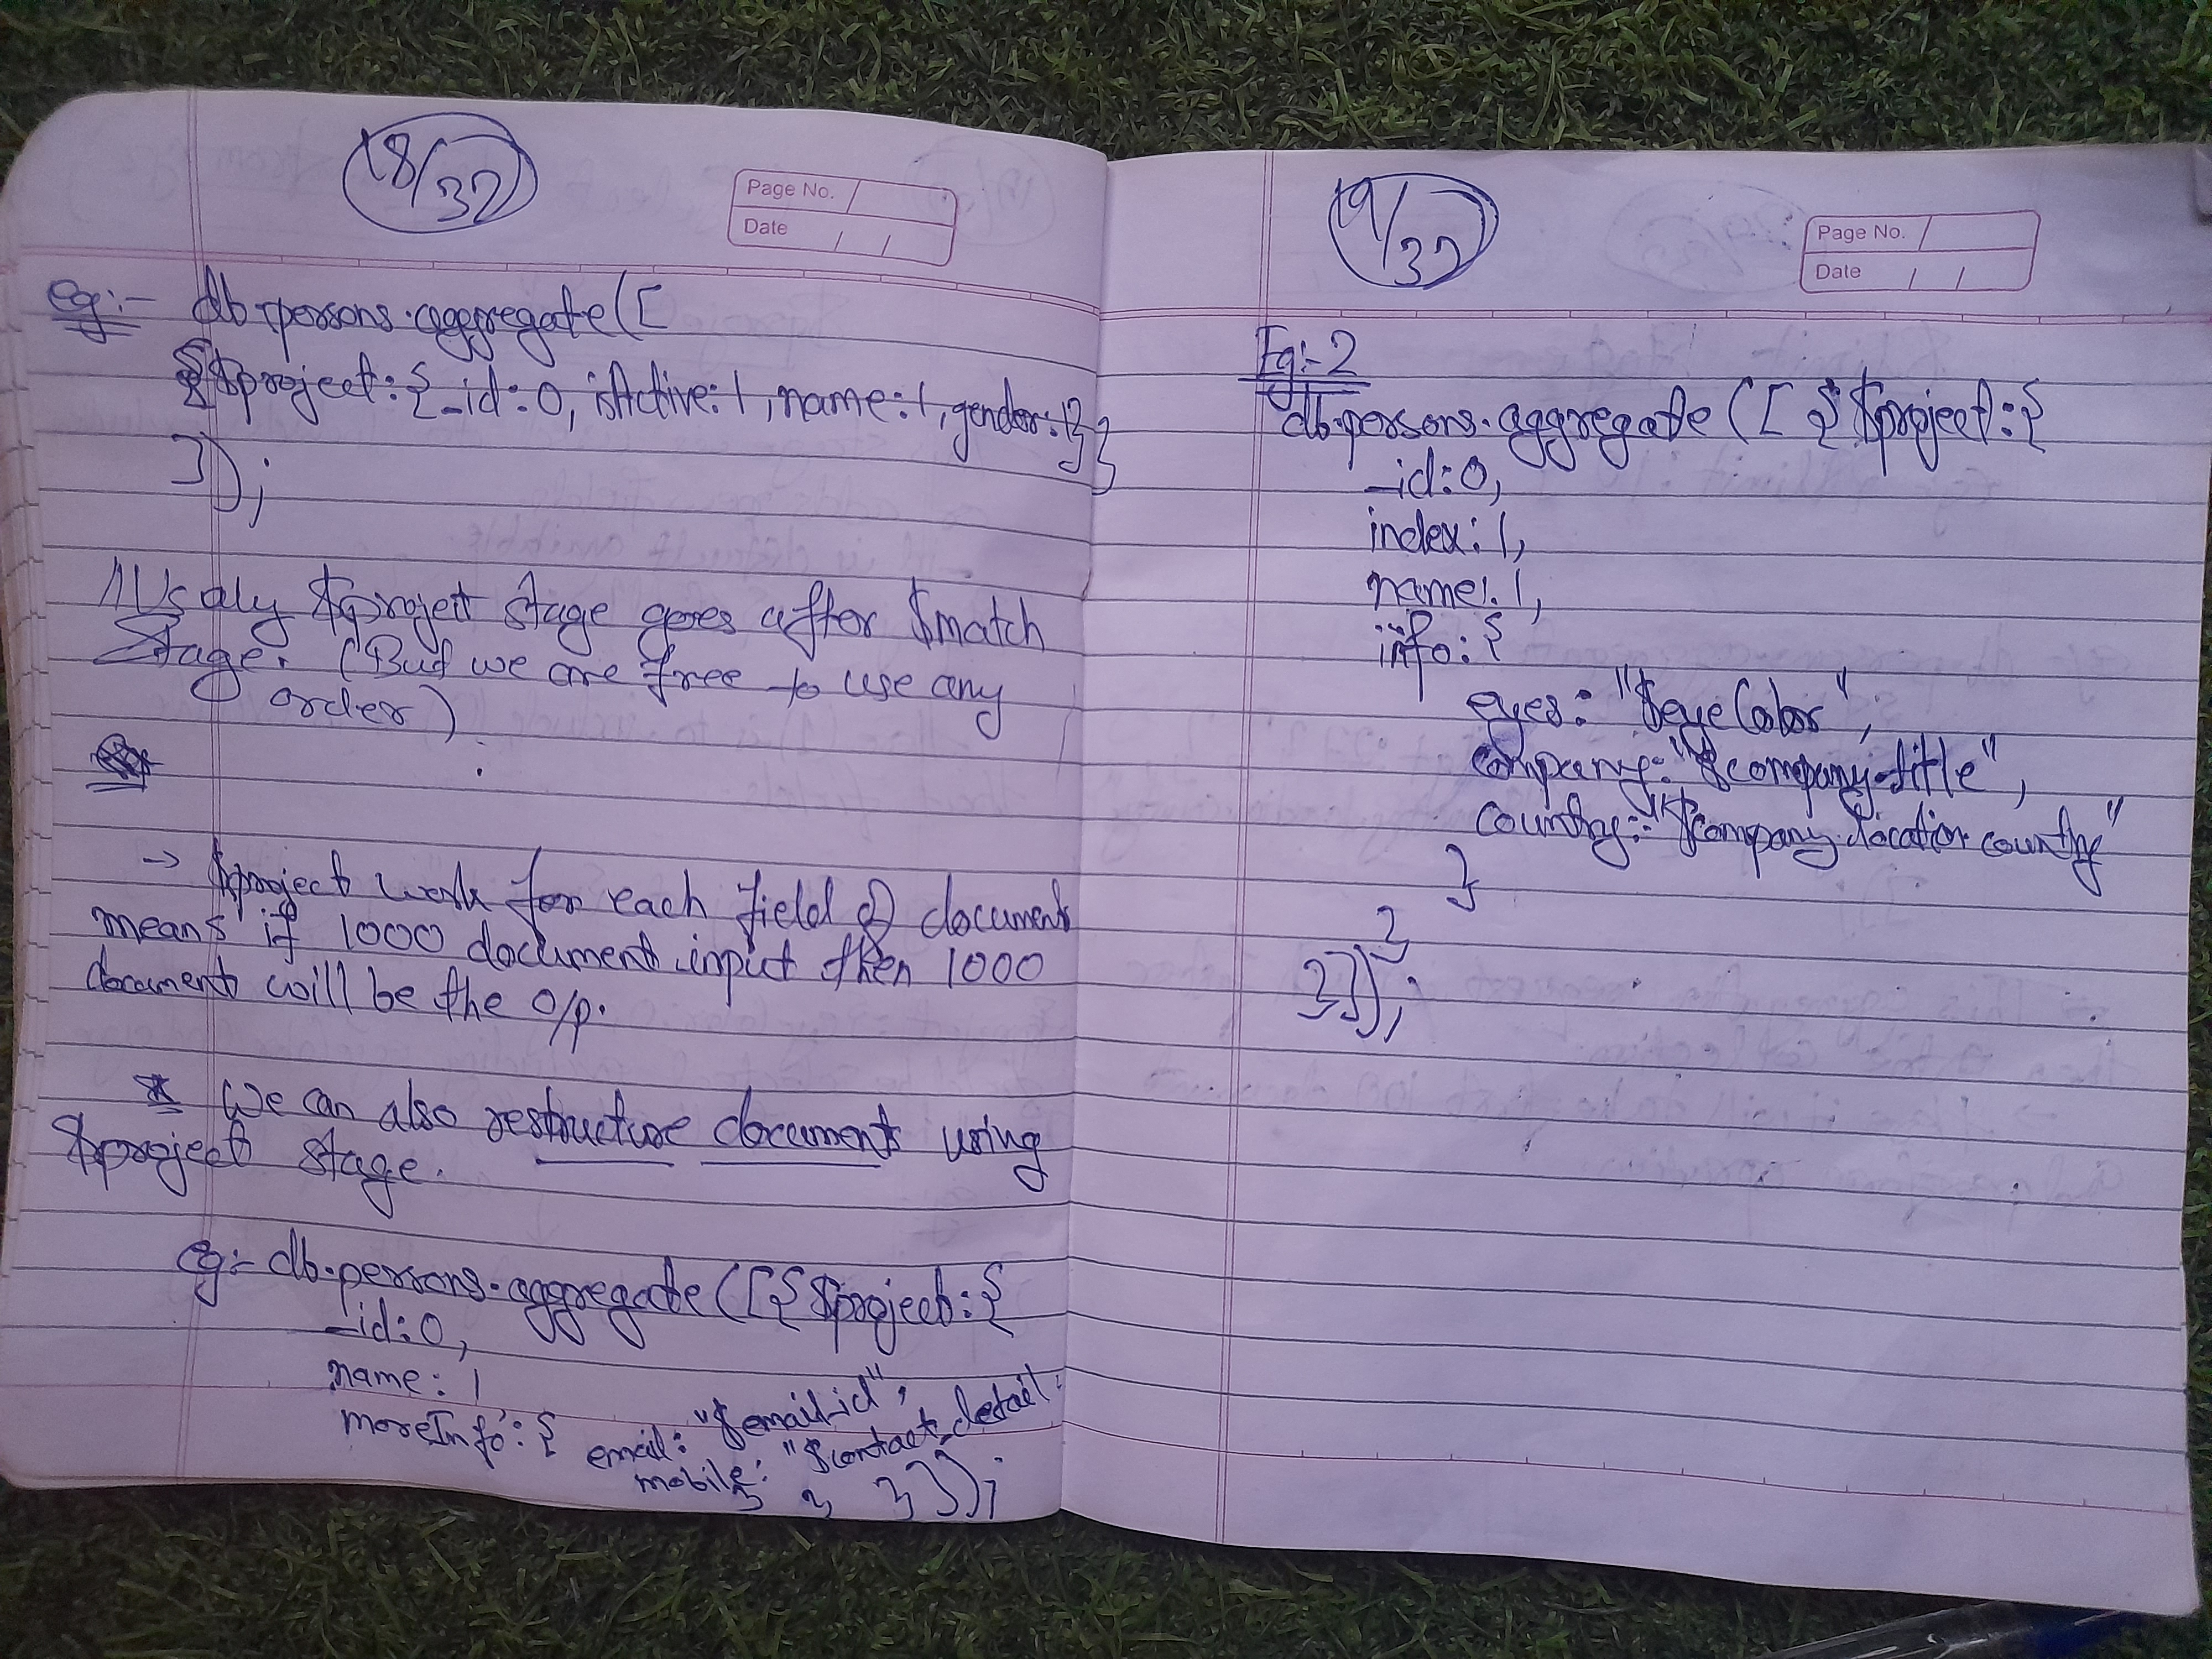 18/32
Page No.
Date / /
eg:- db.persons.aggregate([
{$project:{_id:0, isActive:1, name:1, gender:1}}
]);
Usaly $project stage goes after $match
stage. (But we are free to use any
order)
-> $project work for each field of document
means if 1000 document input then 1000
document will be the o/p.
* We can also restructure document using
$project stage.
eg:- db.persons.aggregate([{$project:{
_id:0,
name:1
moreInfo:{ email: "$email_id",
mobile: "$contact_detail"
} } }]);
19/32
Page No.
Date / /
Eg:-2
db.persons.aggregate([{$project:{
_id:0,
index:1,
name:1,
info:{
eyes: "$eyeColor",
company: "$company.title",
country: "$company.location.country"
}
}
}]);